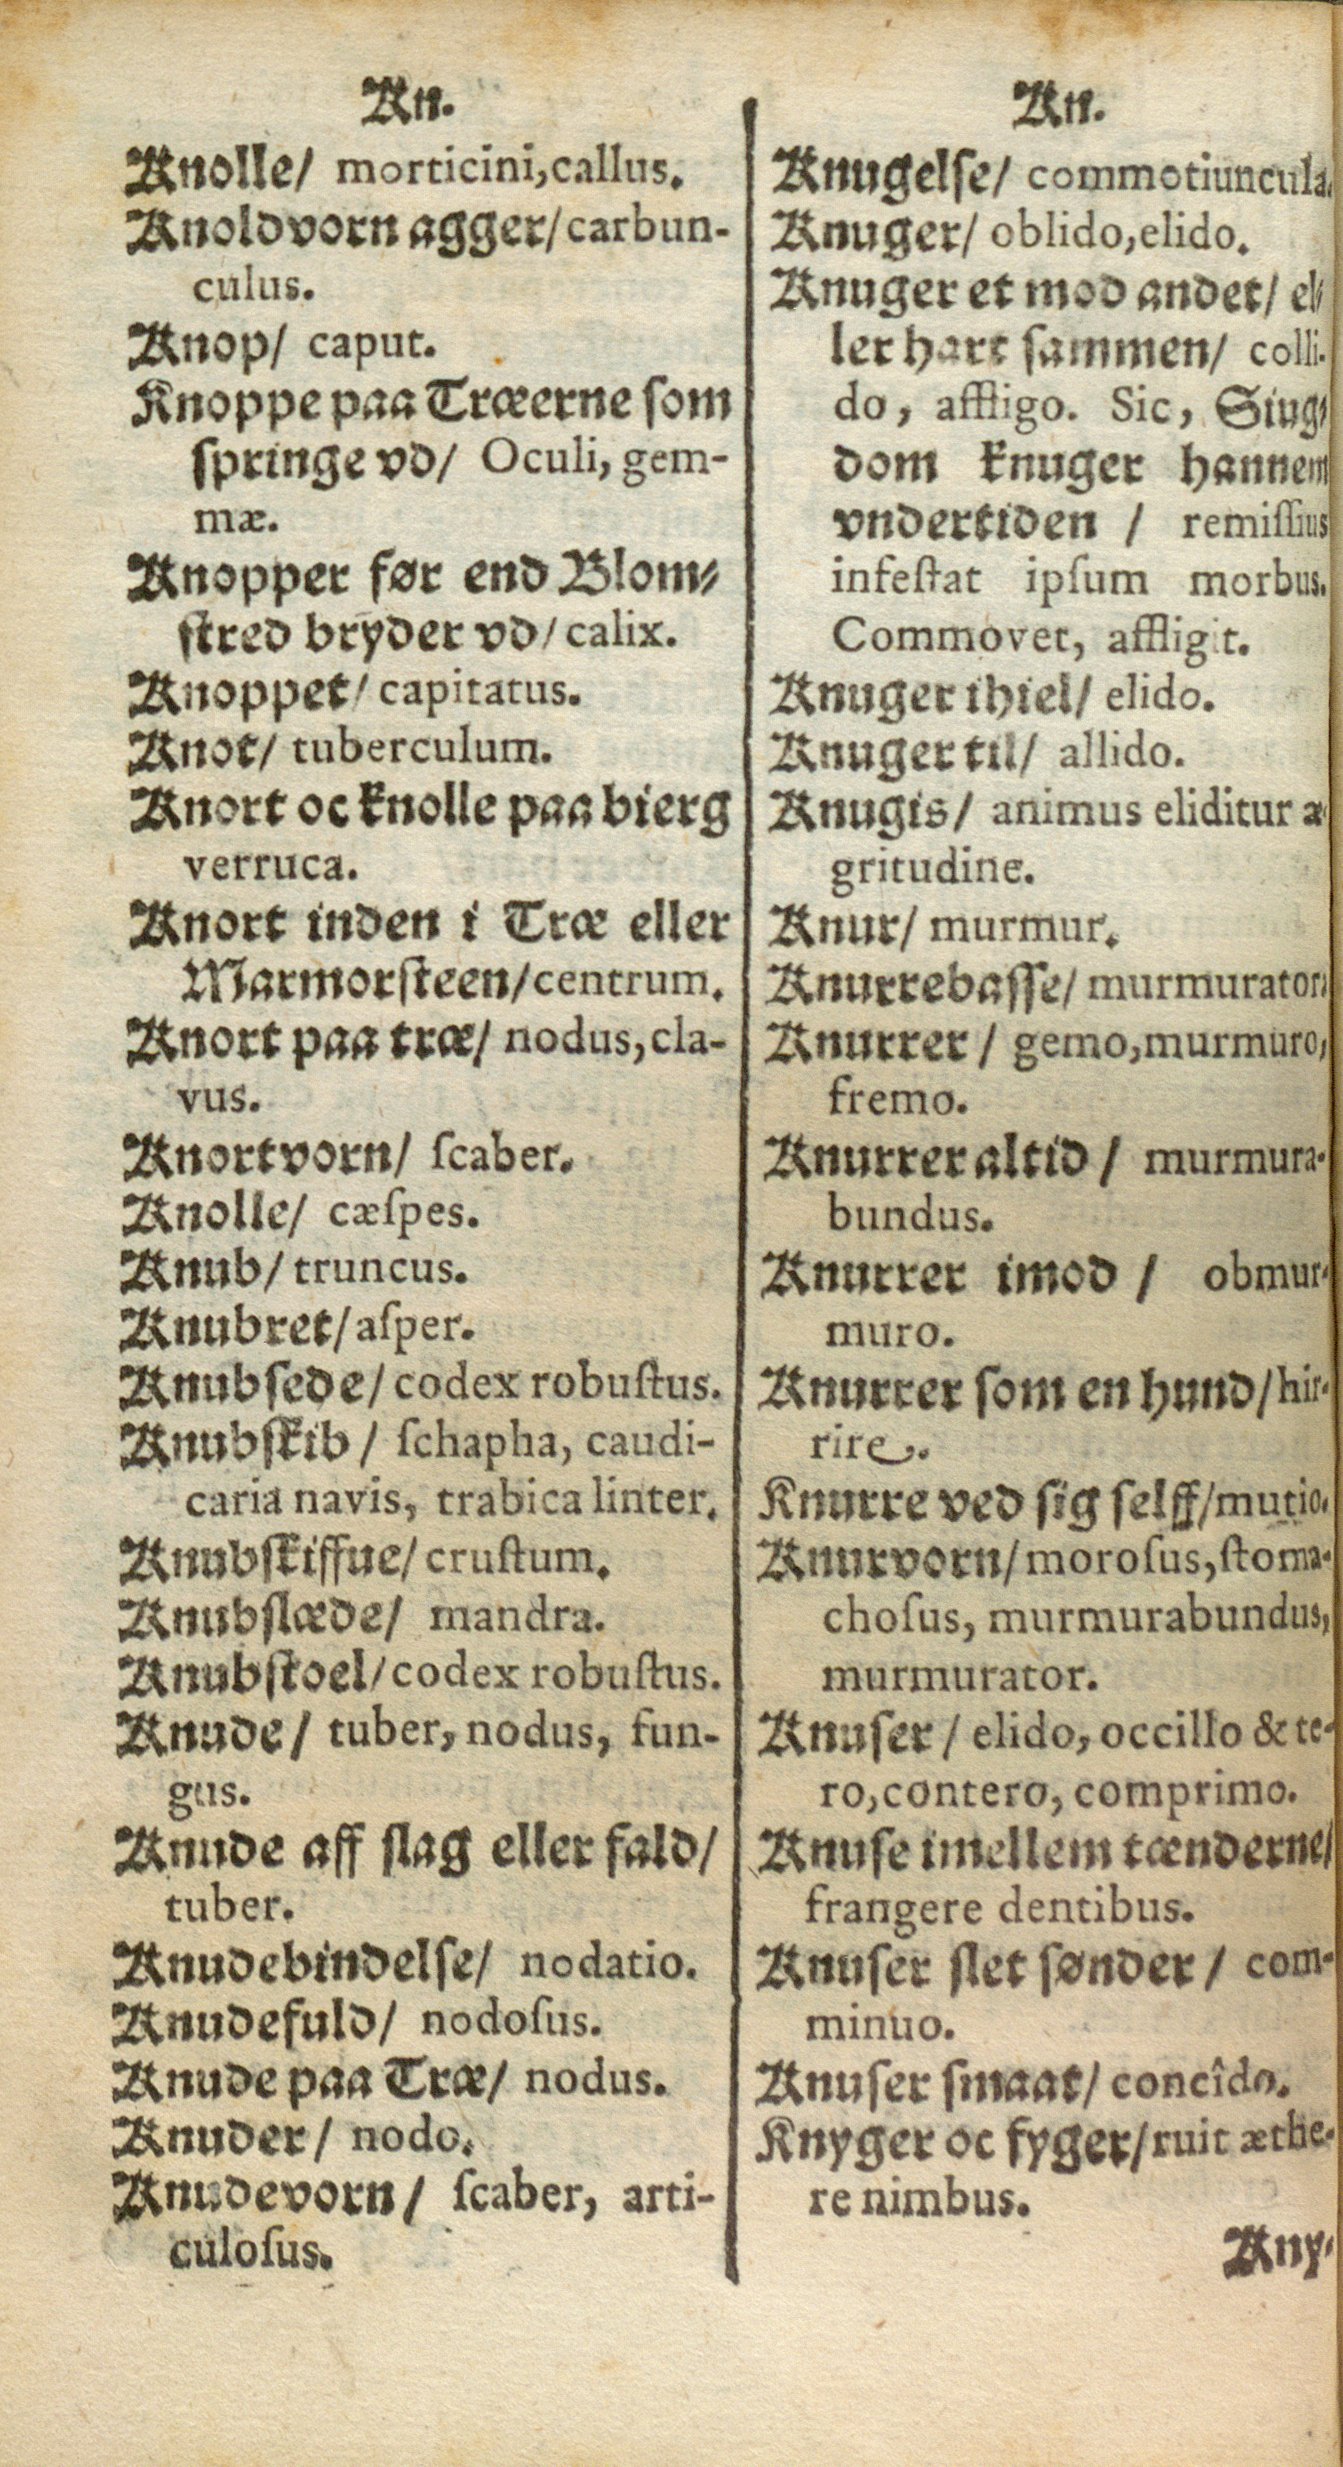 Kn.
Knolle/ morticini,callus.
Knoldvorn agger/carbun-
culus.
Knop/ caput.
Knoppe paa Træerne som
springe vd/ Oculi, gem-
mæ.
Knopper før end Blom-
stred bryder vd/calix.
Knoppet/capitatus.
Knot/ tuberculum.
Knort oc knolle paa bierg
verruca.
Knort inden i Træ eller
Marmorsteen/centrum.
Knort paa træ/ nodus,cla-
vus.
Knortvorn/ ſcaber.
Knolle/ cæſpes.
Knub/truncus.
Knubret/aſper.
Knubſede/codex robuſtus.
Knubſkib/ ſchapha, caudi-
caria navis, trabica linter.
Knubſkiffue/cruſtum.
Knubſlæde/ mandra.
Knubſtoel/codex robuſtus.
Knude/ tuber, nodus, fun-
gus.
Knude aff ſlag eller fald/
tuber.
Knudebindelſe/ nodatio.
Knudefuld/ nodoſus.
Knude paa Træ/ nodus.
Knuder/ nodo.
Knudevorn/ ſcaber, arti-
culoſus.
Kn.
Knugelſe/ commotiuncula.
Knuger/ oblido,elido.
Knuger et mod andet/ el-
ler hart ſammen/ colli-
do, affligo. Sic, Siug-
dom knuger hannem
vndertiden / remiſſius
infeſtat ipſum morbus.
Commovet, affligit.
Knuger ihiel/ elido.
Knuger til/ allido.
Knugis/ animus eliditur æ-
gritudine.
Knur/ murmur.
Knurrebaſſe/ murmurator.
Knurrer/ gemo,murmuro,
fremo.
Knurrer altid/ murmura-
bundus.
Knurrer imod / obmur-
muro.
Knurrer ſom en hund/hir-
rire.
Knurre ved ſig ſelff/mutio.
Knurvorn/moroſus,ſtoma-
choſus, murmurabundus,
murmurator.
Knuſer/ elido, occillo & te-
ro,contero, comprimo.
Knuſe imellem tænderne/
frangere dentibus.
Knuſer ſlet ſønder/ com-
minuo.
Knuſer ſmaat/ concîdo.
Knyger oc fyger/ruit æthe-
re nimbus.
Kny-